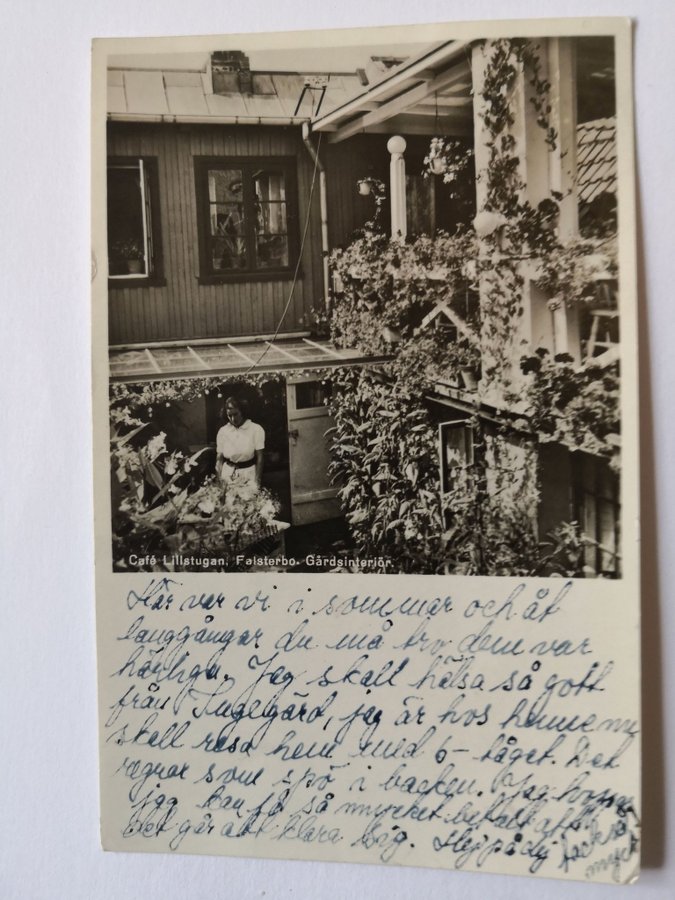 Café Lillstugan, Falsterbo. Gårdsinteriör.
Här var vi i sommar och åt
langgångar du må tro dem var
härliga. Jag skall hälsa så gott
från Ingegärd, jag är hos henne nu
skall resa hem med 6- tåget. Det
regnar som spö i backen. Jag hoppas
jag kan få så mycket betalt att
det går att klara sig. Hejpådej
tack så
mycket